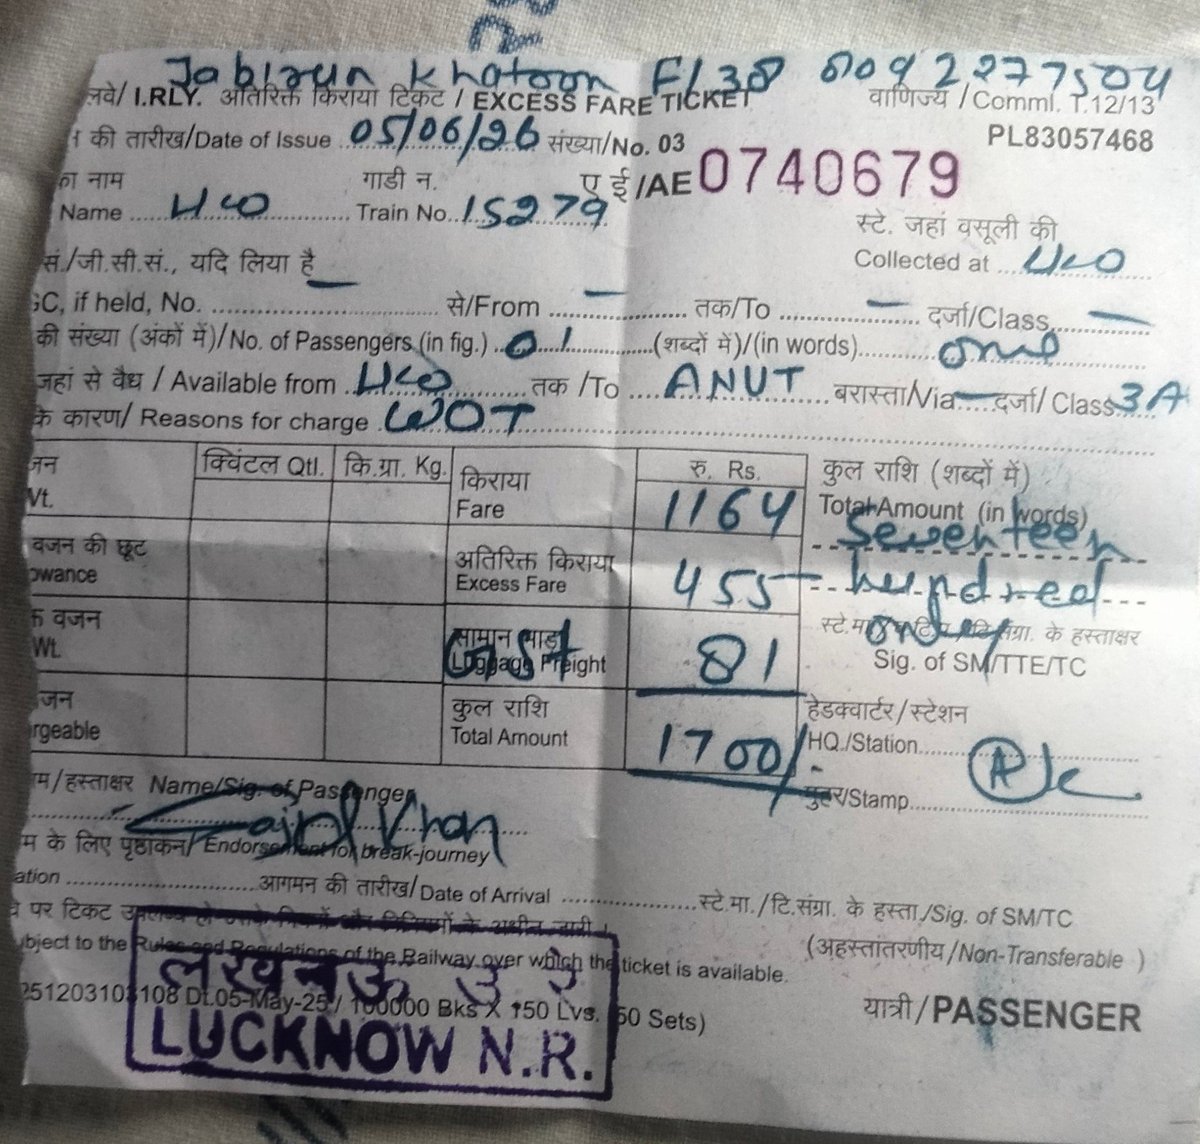 Jabirun Khatoon F/38 8092277504
लवे/ I.RLY. अतिरिक्त किराया टिकट / EXCESS FARE TICKET वाणिज्य /Comml. T.12/13
की तारीख/Date of Issue 05/06/26 संख्या/No. 03 PL83057468
का नाम गाडी न. ए ई/AE 0740679
Name LKO Train No. 15279 स्टे. जहां वसूली की
सं./जी.सी.सं., यदि लिया है — Collected at LKO
GC, if held, No. से/From — तक/To — दर्जा/Class —
की संख्या (अंकों में)/No. of Passengers (in fig.) 01 (शब्दों में)/(in words) one
जहां से वैध / Available from LKO तक /To ANVT बरास्ता/Via — दर्जा/ Class 3A
के कारण/ Reasons for charge WOT
जन क्विंटल Qtl. कि.ग्रा. Kg. किराया रु. Rs. कुल राशि (शब्दों में)
Wt. Fare 1164 Total Amount (in words)
वजन की छूट अतिरिक्त किराया Seventeen
owance Excess Fare 455 hundred
वजन सामान भाड़ा only स्टे.मा. टि.संग्रा. के हस्ताक्षर
Wt. GST Luggage Freight 81 Sig. of SM/TTE/TC
जन कुल राशि हेडक्वार्टर/स्टेशन
rgeable Total Amount 1700/- HQ./Station
नाम/हस्ताक्षर Name/Sig. of Passenger मुहर/Stamp
Khan
के लिए पृष्ठांकन/ Endorsement for break-journey
ation आगमन की तारीख/Date of Arrival स्टे.मा./टि.संग्रा. के हस्ता./Sig. of SM/TC
पर टिकट उपलब्ध हो उसके नियमों और विनियमों के अधीन जारी।
bject to the Rules and Regulations of the Railway over which the ticket is available. (अहस्तांतरणीय /Non-Transferable )
251203103108 Dt.05-May-25 / 100000 Bks X 150 Lvs. (50 Sets) यात्री/PASSENGER
लखनऊ उ रे
LUCKNOW N.R.